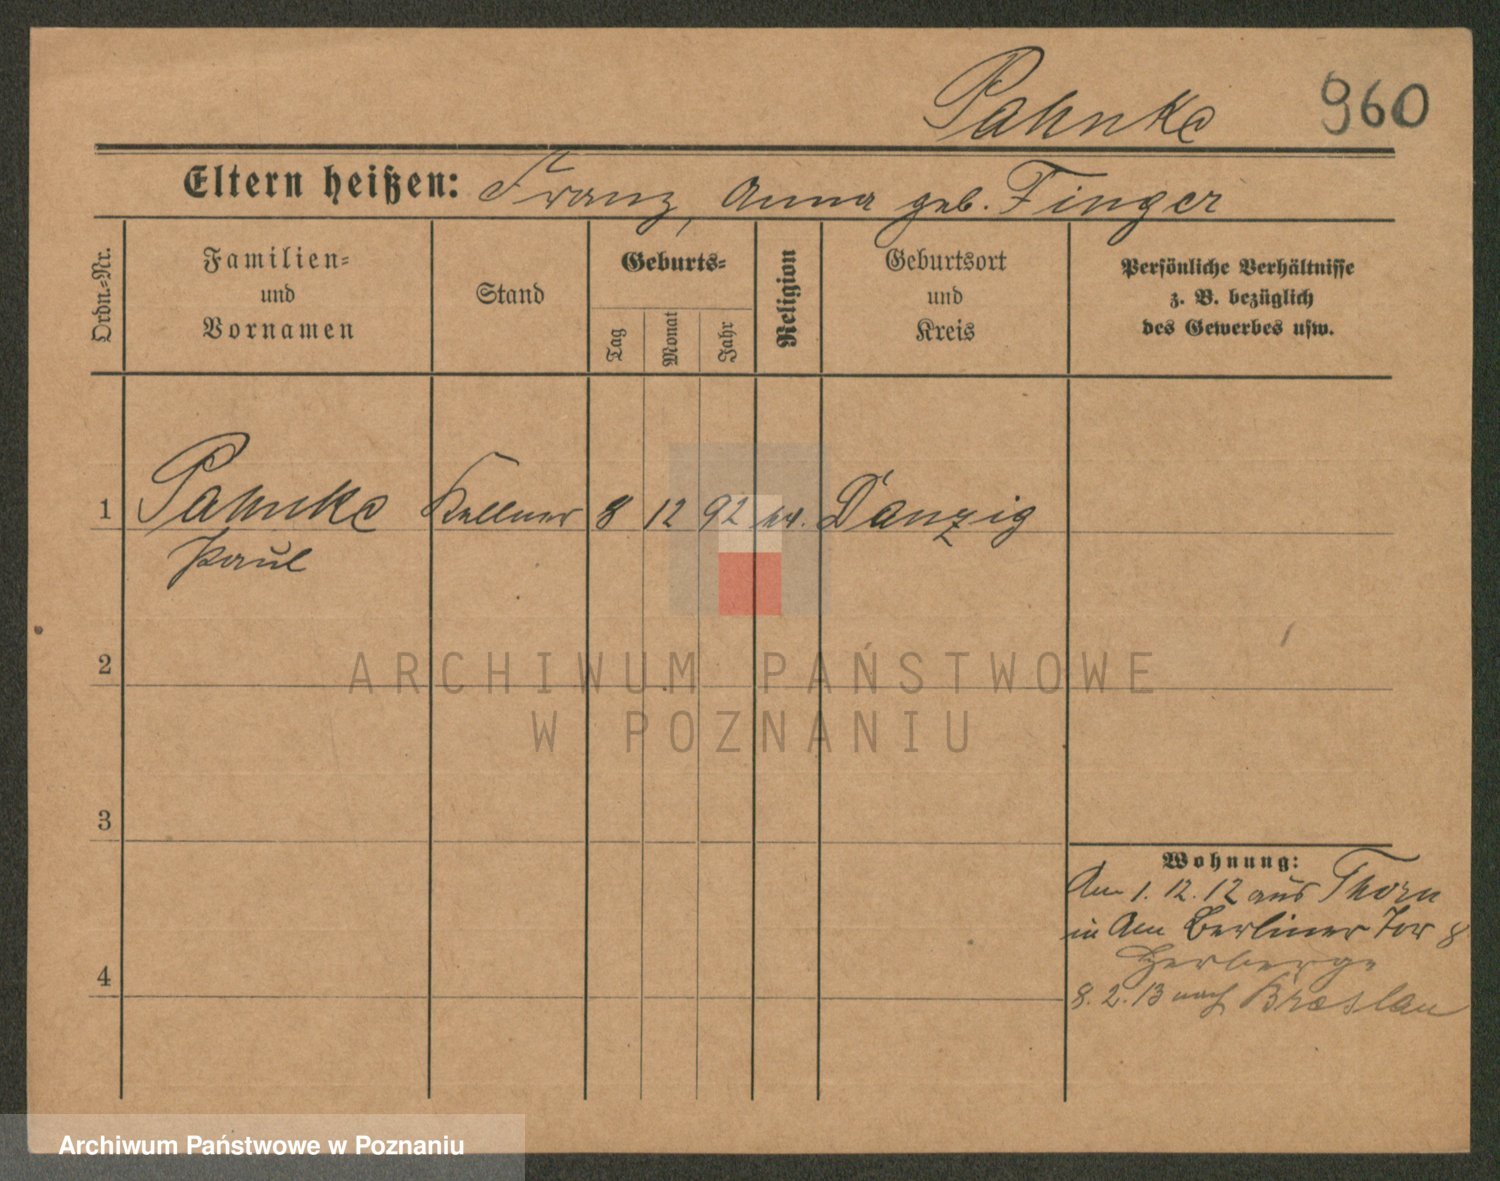 Pahnke 960
Eltern heißen: Franz, Anna geb. Finger
Ordn.-Nr.
Familien-
und
Vornamen
Stand
Geburts-
Tag
Monat
Jahr
Religion
Geburtsort
und
Kreis
Persönliche Verhältnisse
z. B. bezüglich
des Gewerbes usw.
1 Pahnke Kellner 8 12 92 ev. Danzig
Paul
ARCHIWUM PAŃSTWOWE
W POZNANIU
2
3
4
Wohnung:
Am 1.12.12 aus Thorn
in Am Berliner Tor 8
Herberge
8.2.13 nach Breslau
Archiwum Państwowe w Poznaniu